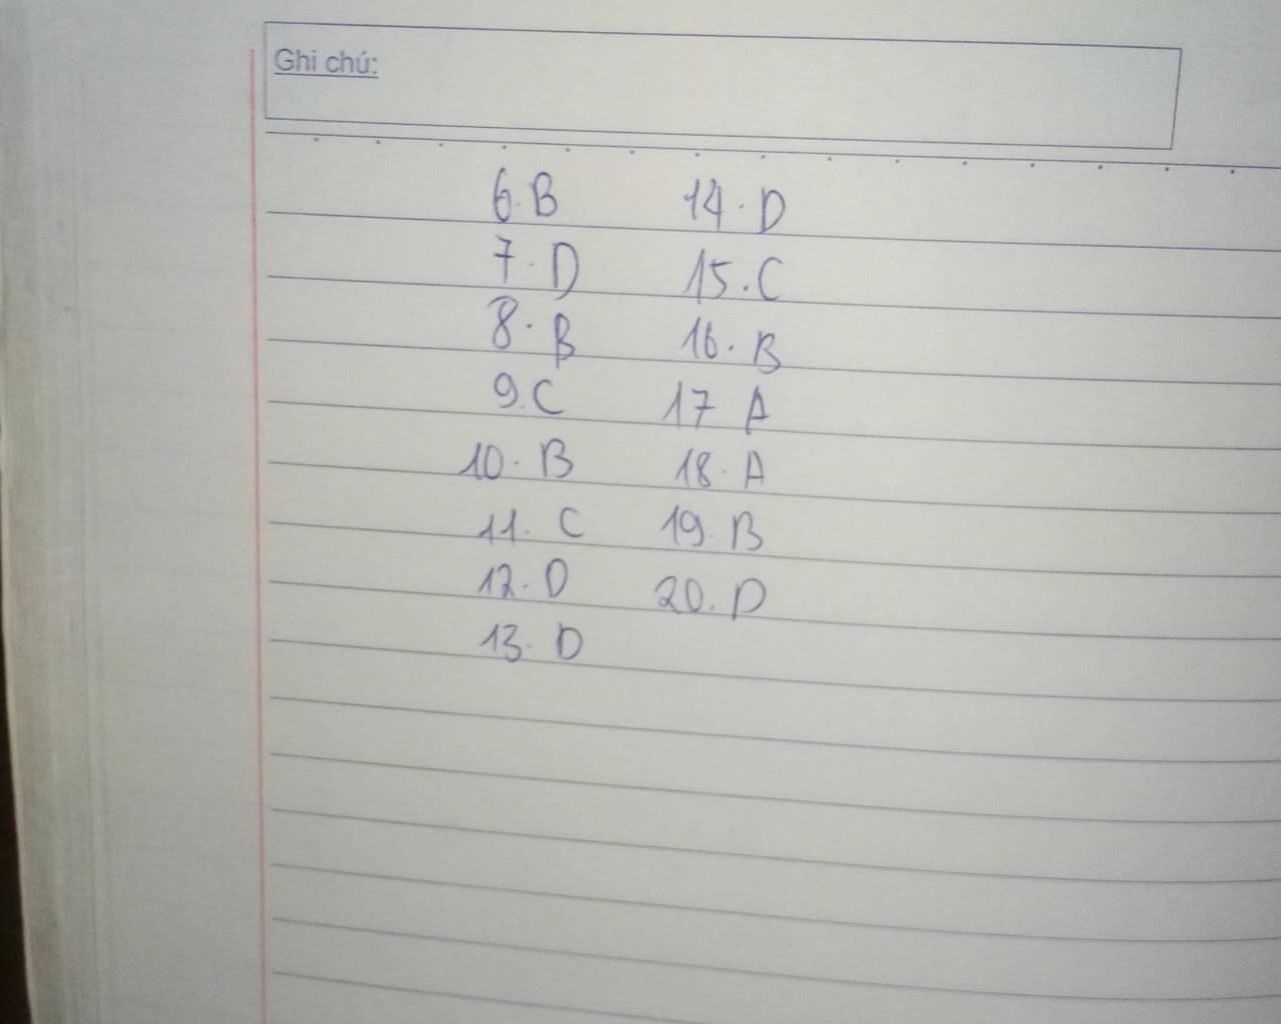 Ghi chú:
6. B
7. D
8. B
9. C
10. B
11. C
12. D
13. D
14. D
15. C
16. B
17 A
18. A
19. B
20. D